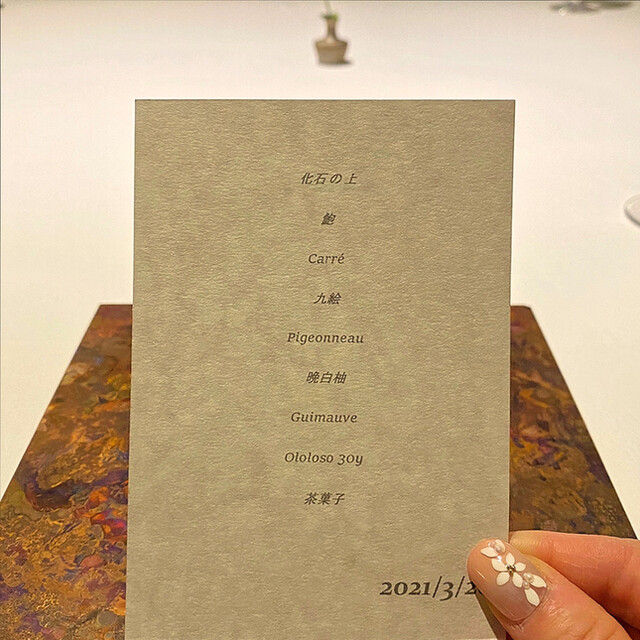 化石の上
鮑
Carré
九絵
Pigeonneau
晩白柚
Guimauve
Ololoso 30y
茶菓子
2021/3/2